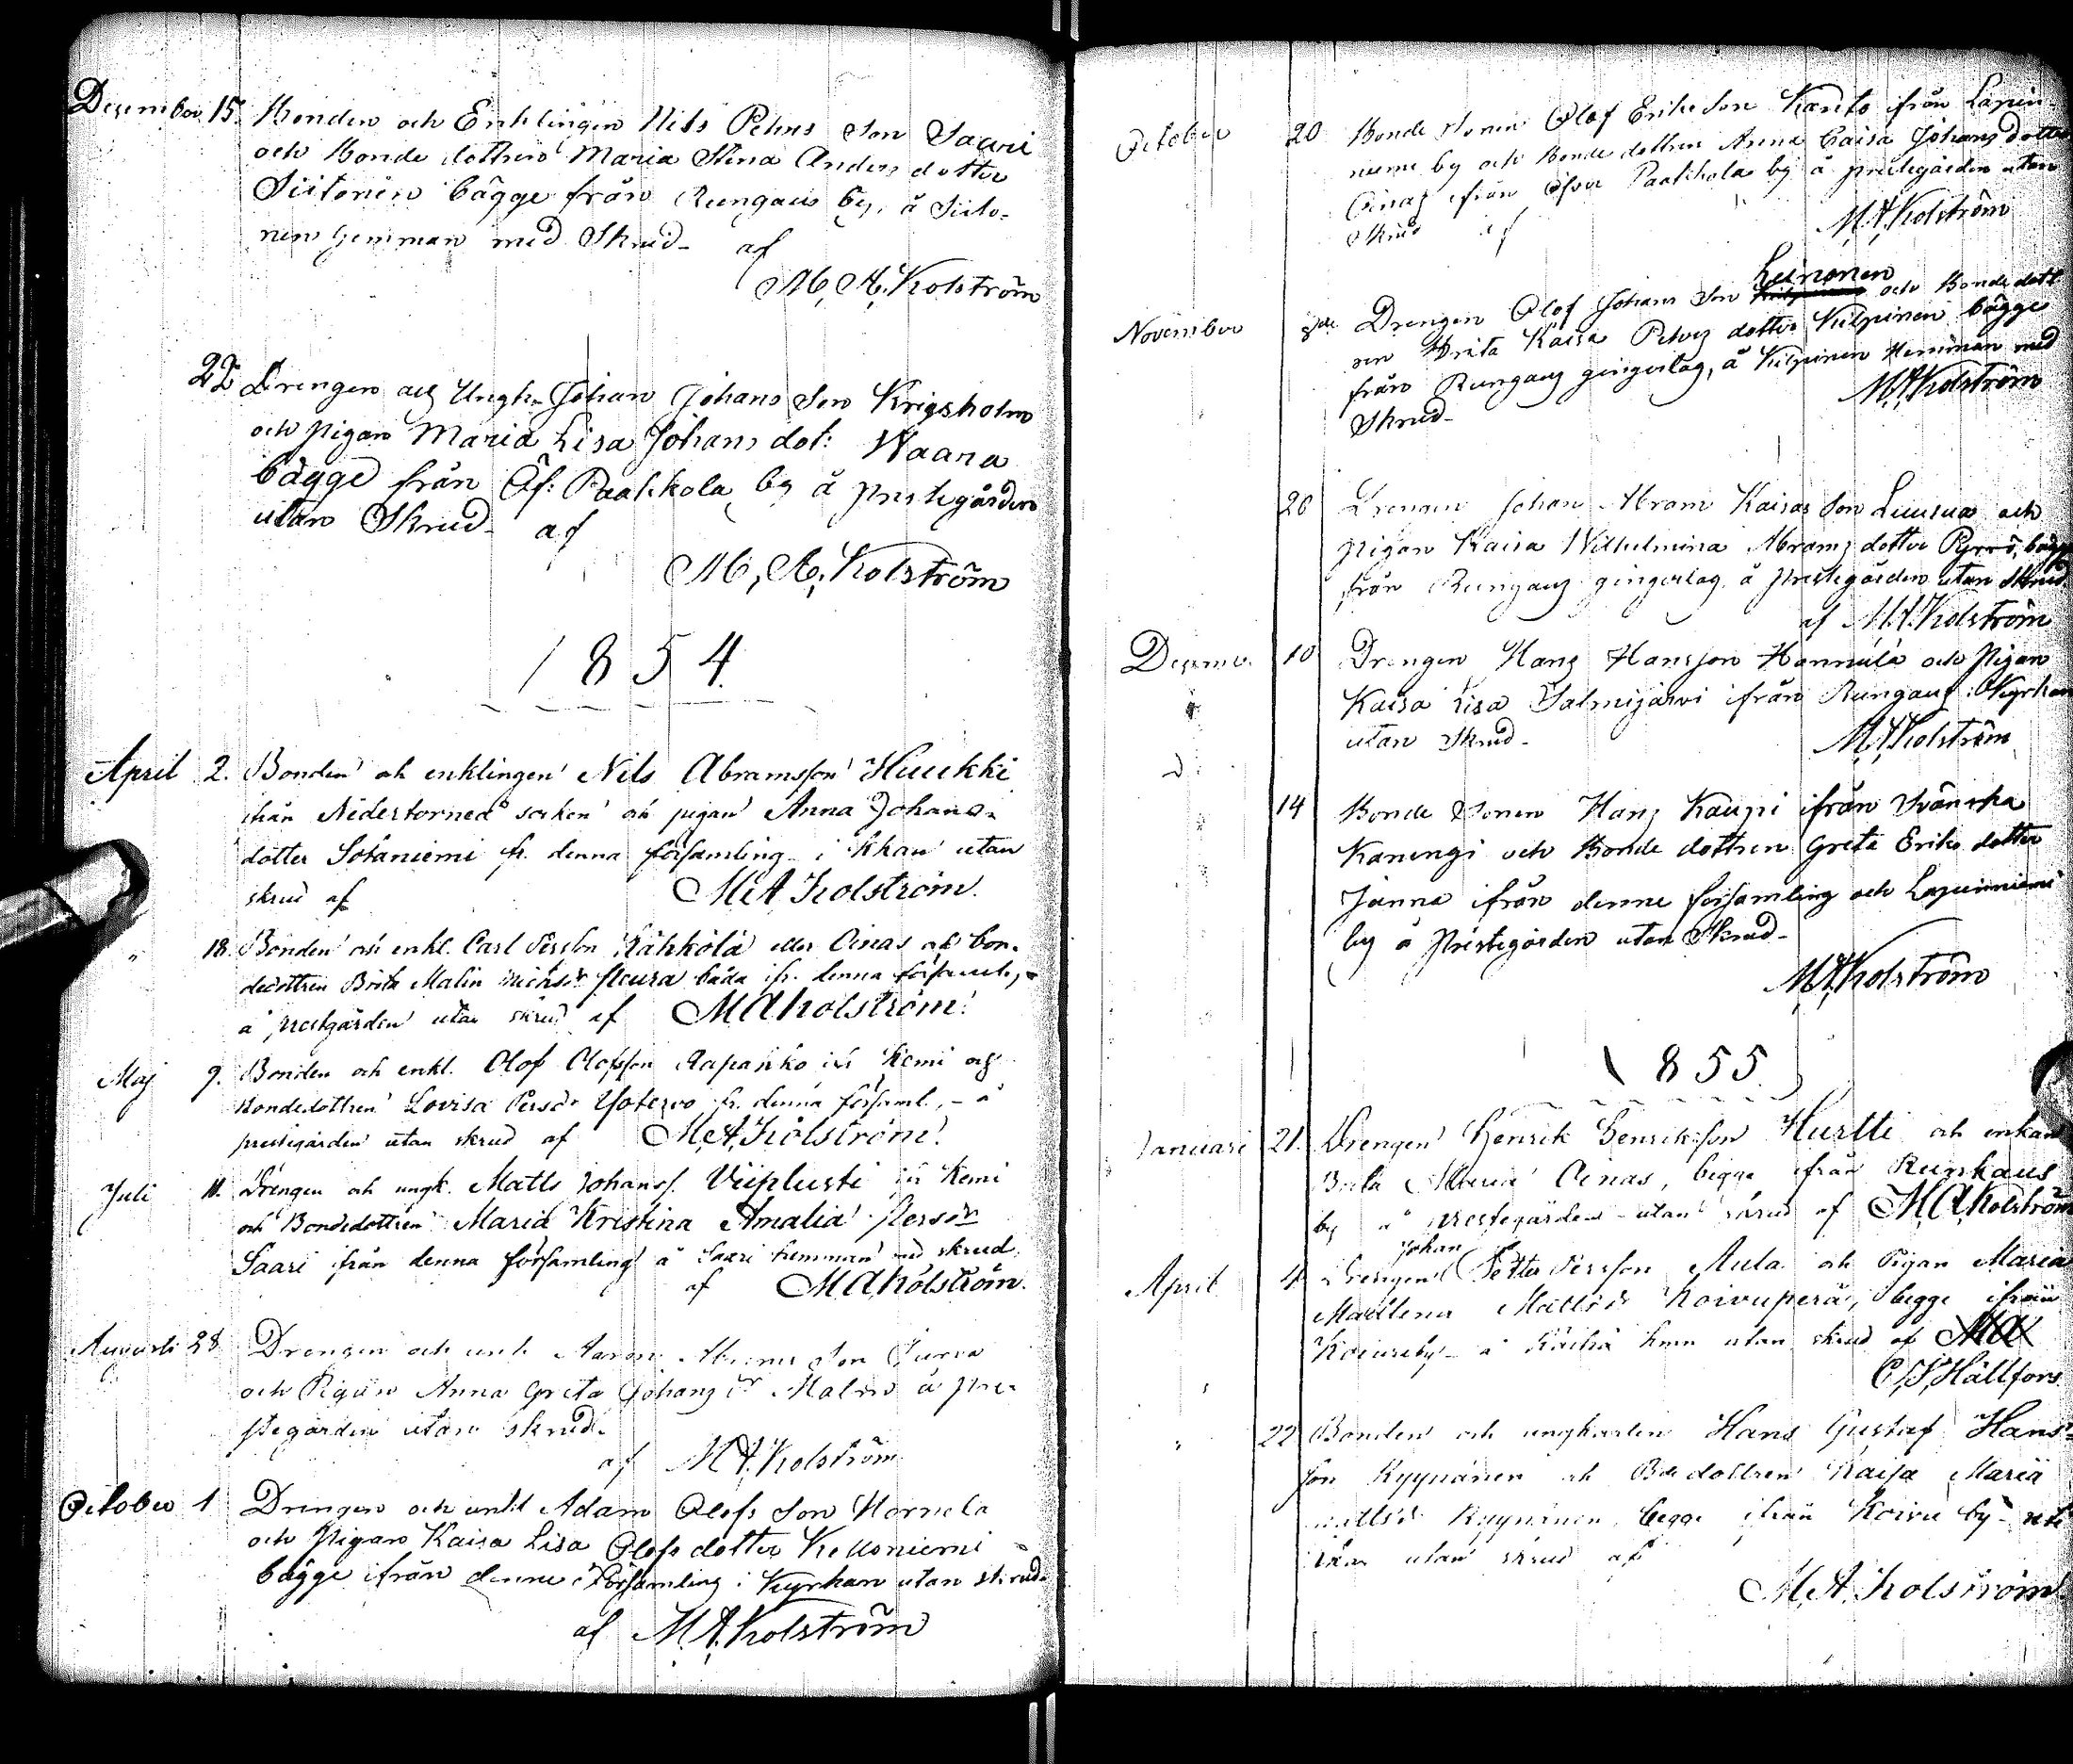 Dezember 15. Bonden och Enklingen Nils Pehrs Son Saari
och Bonde dottren Maria Stina Anders dotter
Siitonen bägge från Rungaus by, å Siito-
nen hemman med Skrud- af
M, A, Kolström
22 Drengen och Ungk. Johan Johans Son Krigsholm
och pigan Maria Lisa Johans dot: Waara
bägge från Öf: Paakkola by å prestegården
utan Skrud- af
M, A, Kolström
1854.
April 2. Bonden och enklingen Nils Abramsson Huukki
ifrån Nedertorneå socken och pigan Anna Johans-
dotter Sotaniemi fr. denna församling i kkan utan
skrud af M A Kolström.
" 18. Bonden och enkl. Carl Persson Kähkölä eller Oinas och bon-
dedottren Brita Malin båda ifr. denna församlg,
å prestgården utan skrud af M A Kolström.
Maj 9. Bonden och enkl. Olof Olofsson Aapakko ifr Kemi och
Bondedottren Lovisa Persdr fr. denna församl. - å
prestegården utan skrud af M A Kolström.
Juli 11. Drengen och ungk. Matts Johanss. Viiplusti ifr Kemi
och Bondedottren Maria Kristina Amalia Persdr
Saari ifrån denna församling å Saari hemman med skrud
af M A Kolström.
Augusti 28 Drengen och unk Aaron Abrams Son Jurva
och Pigan Anna Greta Johanz dr Malm å pre-
stegården utan skrud.
af M A Kolström
October 1 Drengen och unkl Adam Olofs Son Hornula
och Pigan Kaisa Lisa Olofs dotter
bägge ifrån denne Församling i Kyrkan utan skrud.
af M A Kolström
October 20 Bonde Sonen Olof Eriks Son Kanto ifrån Lapin
nieme by och Bonde dottren Anna Caisa Johans dotter
Oinas ifrån Öfver Paakkola by å prestegården utan
Skrud af M A Kolström
November 8de Drengen Olof Johans Son Leinonen och Bonde dott
ren Brita Kaisa Pehrz dotter Kilpinen bägge
från Rungauz gingerlag, å Kilpinen Hemman med
Skrud- M A Kolström
26 Drengen Johan Abram Kaisas Son Luusua och
pigan Kaisa Wilhelmina Abramz dotter Pyrrö, bägge
från Rungauz gingerlag å prestegården utan Skrud.
af M A Kolström
Dezemb. 10 Drengen Hanz Hansson Hannula och Pigan
Kaisa Lisa Salmijärvi ifrån Rungauz i Kyrkan
utan Skrud- M A Kolström
14 Bonde Sonen Hanz Kaupi ifrån Svänska
Karungi och Bonde dottren Greta Eriks dotter
Janna ifrån denne församling och Lapinniemi
by å Prestegården utan Skrud-
M A Kolström
1855.
Januari 21. Drengen Henrik Henriksson Hurtti och enkan
Brita Maria Oinas, begge ifrån Runkaus
by å prestegården utan skrud af M A Kolström
April 4 Drengen Johan Petter Persson Aula och Pigan Maria
Madlena Mattsdr Koivuperä, begge ifrån
Koivuby- å hmn utan skrud af M A
C J Hällfors
" 22 Bonden och ungkarlen Hans Gustaf Hans-
son Kyynänen och Bdedottren Kaisa Maria
Mattsdr Kyynänen begge ifrån Koivu by- uti
utan skrud af
M A Kolström.